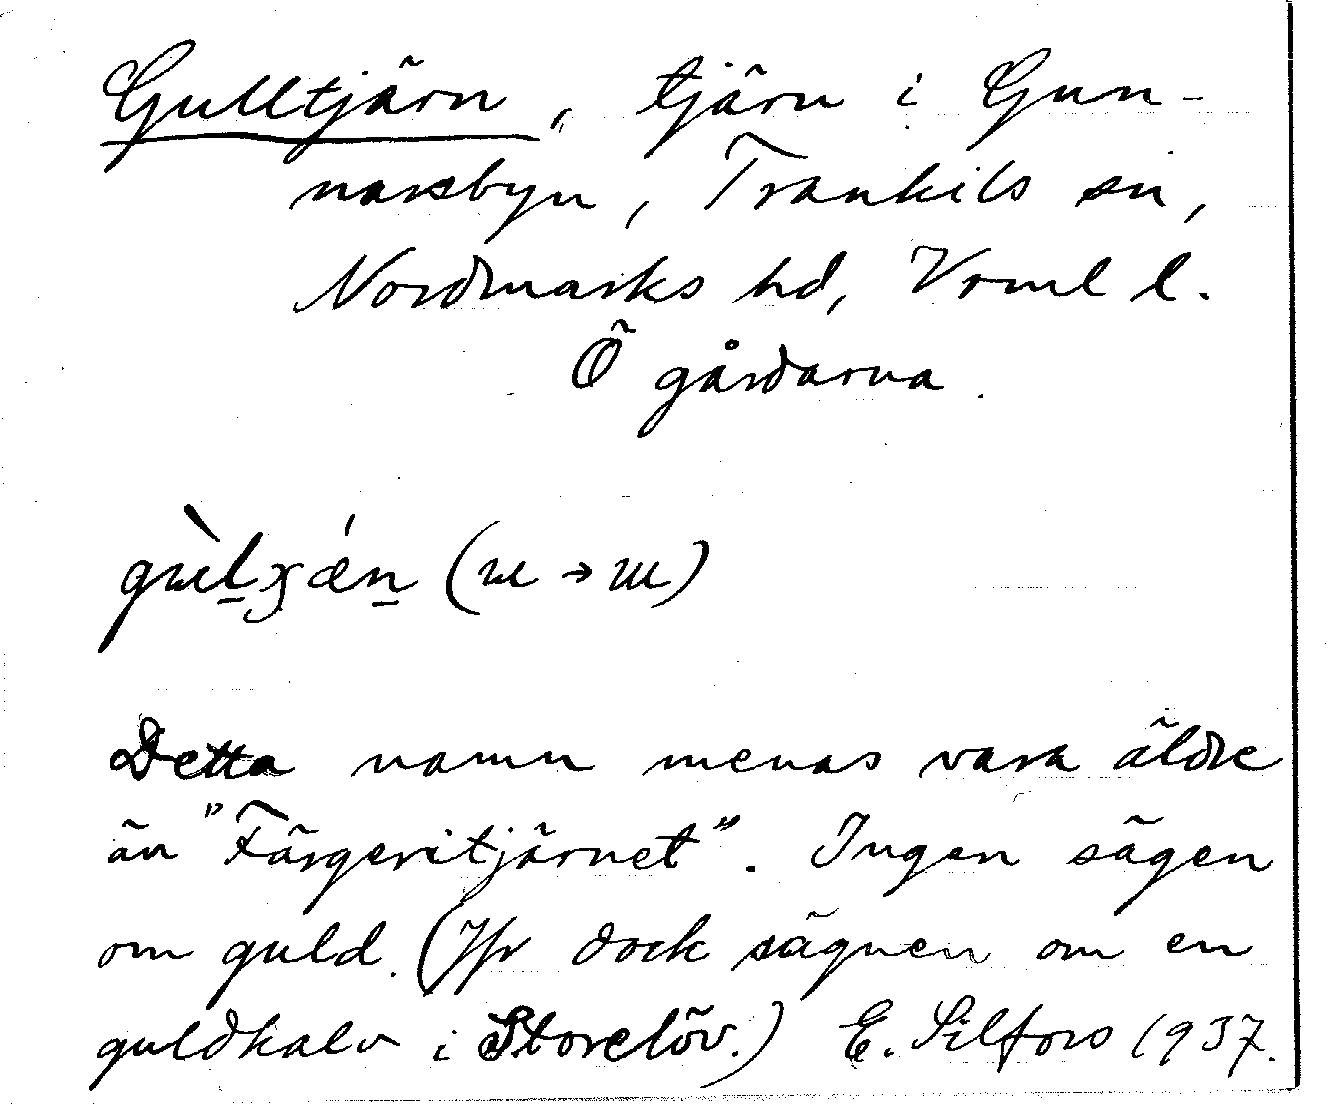 Gulltjärn, tjärn i Gun-
narsbyn, Trankils sn,
Nordmarks hd, Vrml l.
Ö gårdarna.
(ɯ → ɯ)
Detta namn menas vara äldre
än "Färgeritjärnet". Ingen sägen
om guld. (Jfr dock sägnen om en
guldkalv i Storelöv.) E. Silfors 1937.